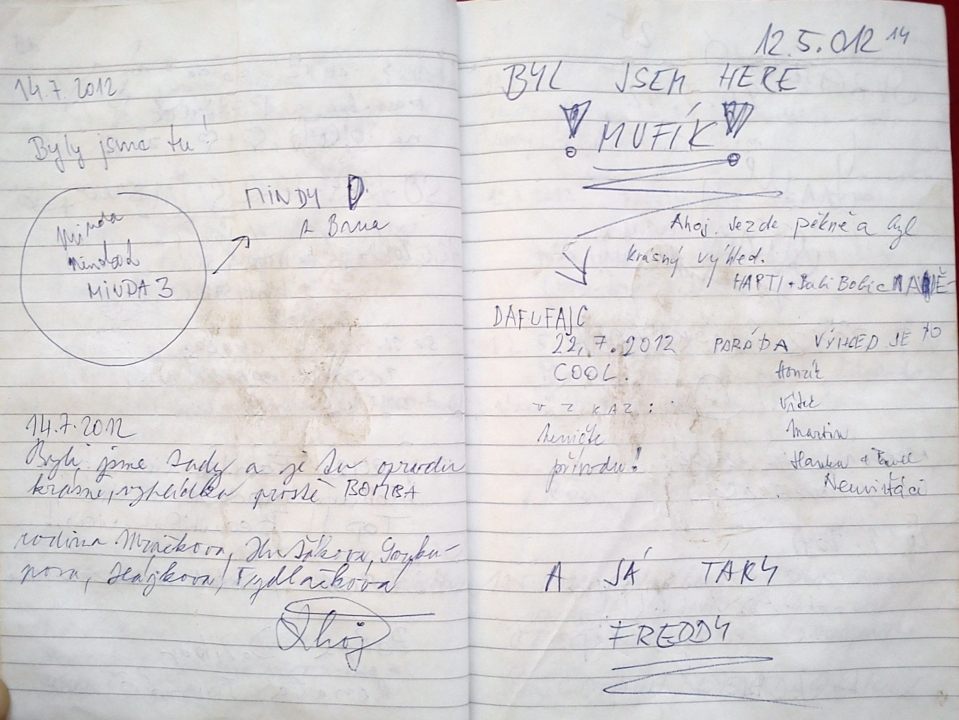 14.7.2012
Byly jsme tu!
Minda
MINDA 3
MINDY
Z Brna
14.7.2012
Byli jsme tady a je tu opravdu
krásně, vyhlídka prostě BOMBA
rodina
Hájkova,
Ahoj
12.5.012 14
BYL JSEM HERE
! MUFÍK !
Ahoj. Je zde pěkně a byl
krásný výhled.
HAPTI +
DAFUFAJC
22.7.2012 PARÁDA VÝHLED JE TO
COOL. Honzík
VZKAZ: Vítek
Martin
přírodu! Hanka + Pavel
A JÁ TAKY
FREDDY